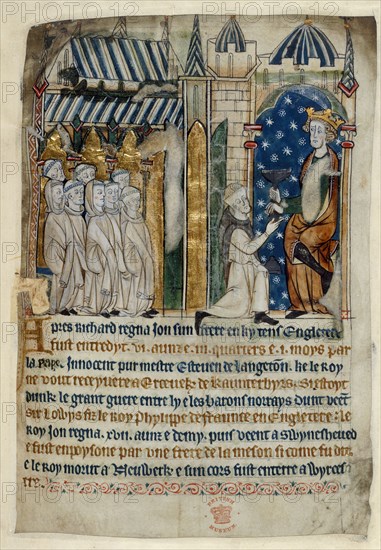 pres Richard regna Jon sun frere en ky tens Engletere
fust entredyt .vi. aunz e .iii. quarters e .i. moys par
la pape Innocent pur mestre Esteuen de langeton. ke le roy
ne vout receyuere a Erceuek de Kaunterbyrs.
dunk le grant guere entre ly e les barons norays dunt veent
sire Lowys fiz le Roy Phylipe de Fraunce en Engletere. le
roy Jon regna .xvii. aunz e demy. puis veent a Swynesheued
e fust enpoysone par une frere de la meson si come fu dit.
e le roy morut a Neuwerk e sun cors fust enterre a Wyrces
tre.
BRITISH
MUSEUM